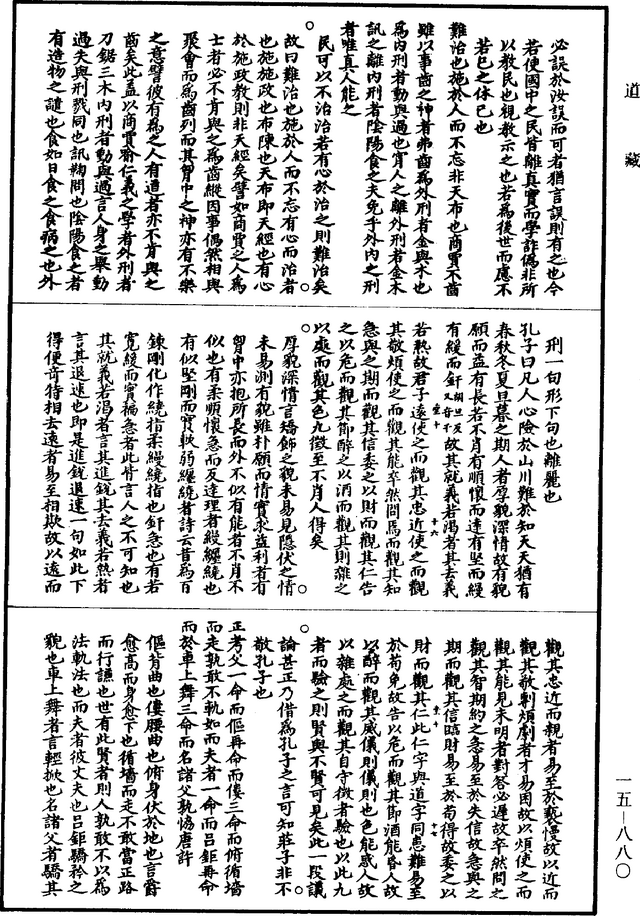 道藏
必誤於汝誤而可者猶言誤則有之也今
若使國中之民皆離真實而學詐偽非所
以教民也視教示之也若為後世而慮不
若已之休已也
難治也施於人而不忘非天布也商賈不齒
雖以事齒之神者弗齒為外刑者金與木也
為內刑者動與過也宵人之離外刑者金木
訊之離內刑者陰陽食之夫免乎外內之刑
者唯真人能之
民可以不治治若有心於治之則難治矣
故曰難治也施於人而不忘有心而治者
也施施政也布陳也天布即天經也有心
於施政教則非天經矣譬如商賈之人為
士者必不肯與之為齒縱因事偶然相與
聚會而為齒列而其胷中之神亦有不樂
之意譬彼有為之人有道者亦不肯與之
齒矣此蓋以商賈喻仁義之學者外刑者
刀鋸三木內刑者動與過言人身之舉動
過失與刑戮同也訊鞠問也陰陽食之者
有造物之譴也食如日食之食病之也外
刑一句形下句也離麗也
孔子曰凡人心險於山川難於知天天猶有
春秋冬夏旦暮之期人者厚貌深情故有貌
願而益有長若不肖有順懁而達有堅而縵
有緩而釬胡旦反又音干故其就義若渴者其去義
若熱故君子遠使之而觀其忠近使之而觀
其敬煩使之而觀其能卒然問焉而觀其知
急與之期而觀其信委之以財而觀其仁告
之以危而觀其節醉之以酒而觀其則雜之
以處而觀其色九徵至不肖人得矣
厚貌深情言矯飾之貌未易見隱伏之情
未易測有貌雖朴願而情實求益利者有
胷中亦抱所長而外不似有能者不肖不
似也有柔順懷急而反達理者縵纏繞也
有似堅剛而實軟弱纏繞者詩云昔為百
鍊剛化作繞指柔縵繞指也釬急也有若
寬緩而實褊急者此皆言人之不可知也
其就義若渴者言其進銳其去義若熱者
言其退速也即是進銳退速一句如此下
得便奇特相去遠者易至相欺故以遠而
觀其忠近而親者易至於褻慢故以近而
觀其敬劇煩劇者才易困故以煩使之而
觀其能見未明者對答必遲故卒然問之
觀其智期約之急易至於失信故急與之
期而觀其信臨財易至於苟得故委之以
財而觀其仁此仁字與道字同患難易至
於苟免故告以危而觀其節酒能昏人故
以醉而觀其威儀則儀則也色能惑人故
以雜處之而觀其自守徵者驗也以此九
者而驗之則賢與不賢可見矣此一段議
論甚正乃借為孔子之言可知莊子非不
敬孔子也
正考父一命而傴再命而僂三命而俯循墻
而走孰敢不軌如而夫者一命而呂鉅再命
而於車上舞三命而名諸父孰恊唐許
傴背曲也僂腰曲也俯身伏於地也言爵
愈高而身愈下也循墻而走不敢當正路
而行謙也世有此賢者則人孰敢不以為
法軌法也而夫者彼丈夫也呂鉅驕矜之
貌也車上舞者言輕掀也名諸父者驕其
一五—八八〇